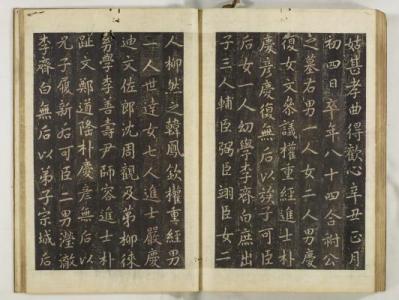 姑甚孝曲得歡心辛丑正月
初四日卒年八十四合祔公
之墓右男一人女二人男慶
復女文參議權重經進士朴
慶彦慶復無后以族子可臣
后女一人幼學李齊白庶出
子三人輔臣弼臣翊臣女二
人柳然之韓鳳欽權重經男
二人世達女七人進士嚴慶
迪文佐郎沈周觀及第柳徠
勢學李善壽尹師容進士朴
趾文鄭道隆朴慶彦無后以
兄子履新后可臣二男瀅澈
李齊白無后以弟子宗城后